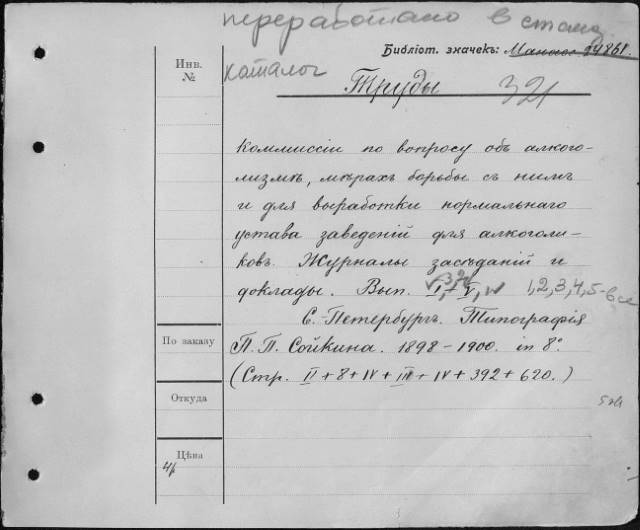 переработано в стама
Библіот. значекъ: 24861
Инв.
№
каталог
Труды
321
Коммиссіи по вопросу объ алкого-
лизмѣ, мѣрахъ борьбы съ нимъ
и для выработки нормальнаго
устава заведеній для алкоголи-
ковъ. Журналы засѣданій и
доклады. Вып. I, + V, IV 1,2,3,4,5-все
С.-Петербургъ. Типографія
По заказу
П. П. Сойкина. 1898-1900. in 8°.
(Стр. II + 8 + IV + III + IV + 392 + 620.)
Откуда
Цѣна